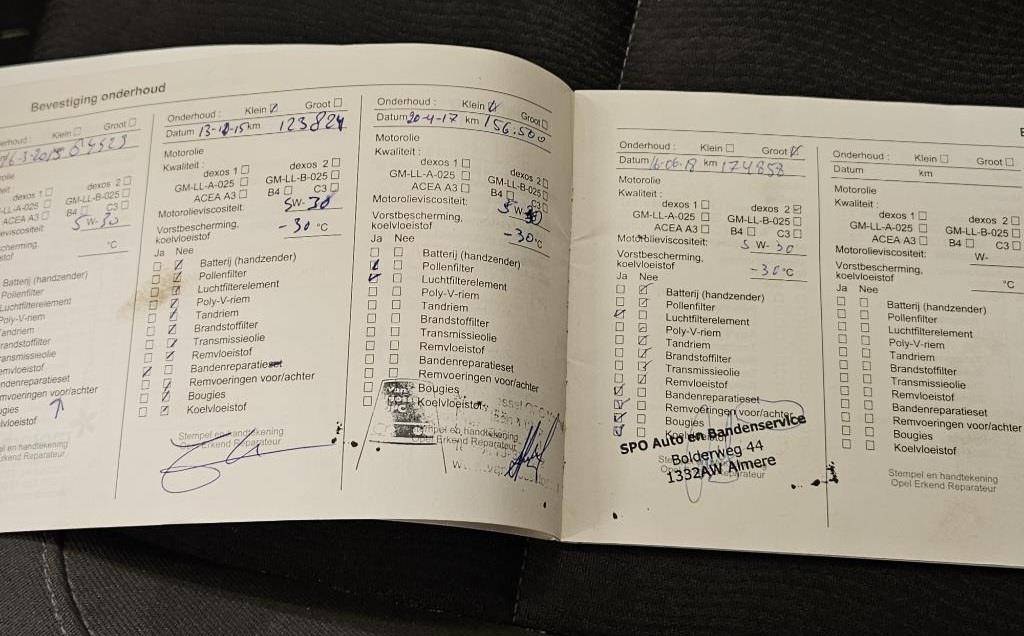 Bevestiging onderhoud
Klein Groot
64429
dexos 1 dexos 2
GM-LL-B-025
ACEA A3 B4
5 W-30
°C
Batterij (handzender)
Pollenfilter
Luchtfilterelement
Poly-V-riem
Tandriem
Onderhoud : Klein Groot
km 123824
Motorolie
Kwaliteit :
dexos 1 dexos 2
GM-LL-A-025 GM-LL-B-025
ACEA A3 B4 C3
Motorolieviscositeit: 5W-30
Vorstbescherming,
koelvloeistof -30 °C
Ja Nee
Batterij (handzender)
Pollenfilter
Luchtfilterelement
Poly-V-riem
Tandriem
Brandstoffilter
Transmissieolie
Remvloeistof
Bandenreparatieset
Remvoeringen voor/achter
Bougies
Koelvloeistof
Stempel en handtekening
Opel Erkend Reparateur
Onderhoud : Klein Groot
Datum 20-4-17 km 156.500
Motorolie
Kwaliteit :
dexos 1 dexos 2
GM-LL-A-025 GM-LL-B-025
ACEA A3 B4 C3
Motorolieviscositeit: 5 W-30
Vorstbescherming,
koelvloeistof -30 °C
Ja Nee
Batterij (handzender)
Pollenfilter
Luchtfilterelement
Poly-V-riem
Tandriem
Brandstoffilter
Transmissieolie
Remvloeistof
Bandenreparatieset
Remvoeringen voor/achter
Bougies
Koelvloeistof
Stempel en handtekening
Opel Erkend Reparateur
Onderhoud : Klein Groot
Datum 16-06-18 km 174858
Motorolie
Kwaliteit :
dexos 1 dexos 2
GM-LL-A-025 GM-LL-B-025
ACEA A3 B4 C3
Motorolieviscositeit: 5 W-30
Vorstbescherming,
koelvloeistof -30 °C
Ja Nee
Batterij (handzender)
Pollenfilter
Luchtfilterelement
Poly-V-riem
Tandriem
Brandstoffilter
Transmissieolie
Remvloeistof
Bandenreparatieset
Remvoeringen voor/achter
Bougies
SPO Auto en Bandenservice
Bolderweg 44
1332AW Almere
Onderhoud : Klein Groot
Datum km
Motorolie
Kwaliteit :
dexos 1 dexos 2
GM-LL-A-025 GM-LL-B-025
ACEA A3 B4 C3
Motorolieviscositeit: W-
Vorstbescherming,
koelvloeistof °C
Ja Nee
Batterij (handzender)
Pollenfilter
Luchtfilterelement
Poly-V-riem
Tandriem
Brandstoffilter
Transmissieolie
Remvloeistof
Bandenreparatieset
Remvoeringen voor/achter
Bougies
Koelvloeistof
Stempel en handtekening
Opel Erkend Reparateur